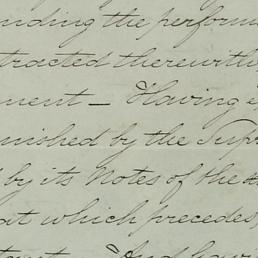 nding the perform
tracted therewith
ment — Having e
nished by the Supr
by its Notes of the
at which precedes,